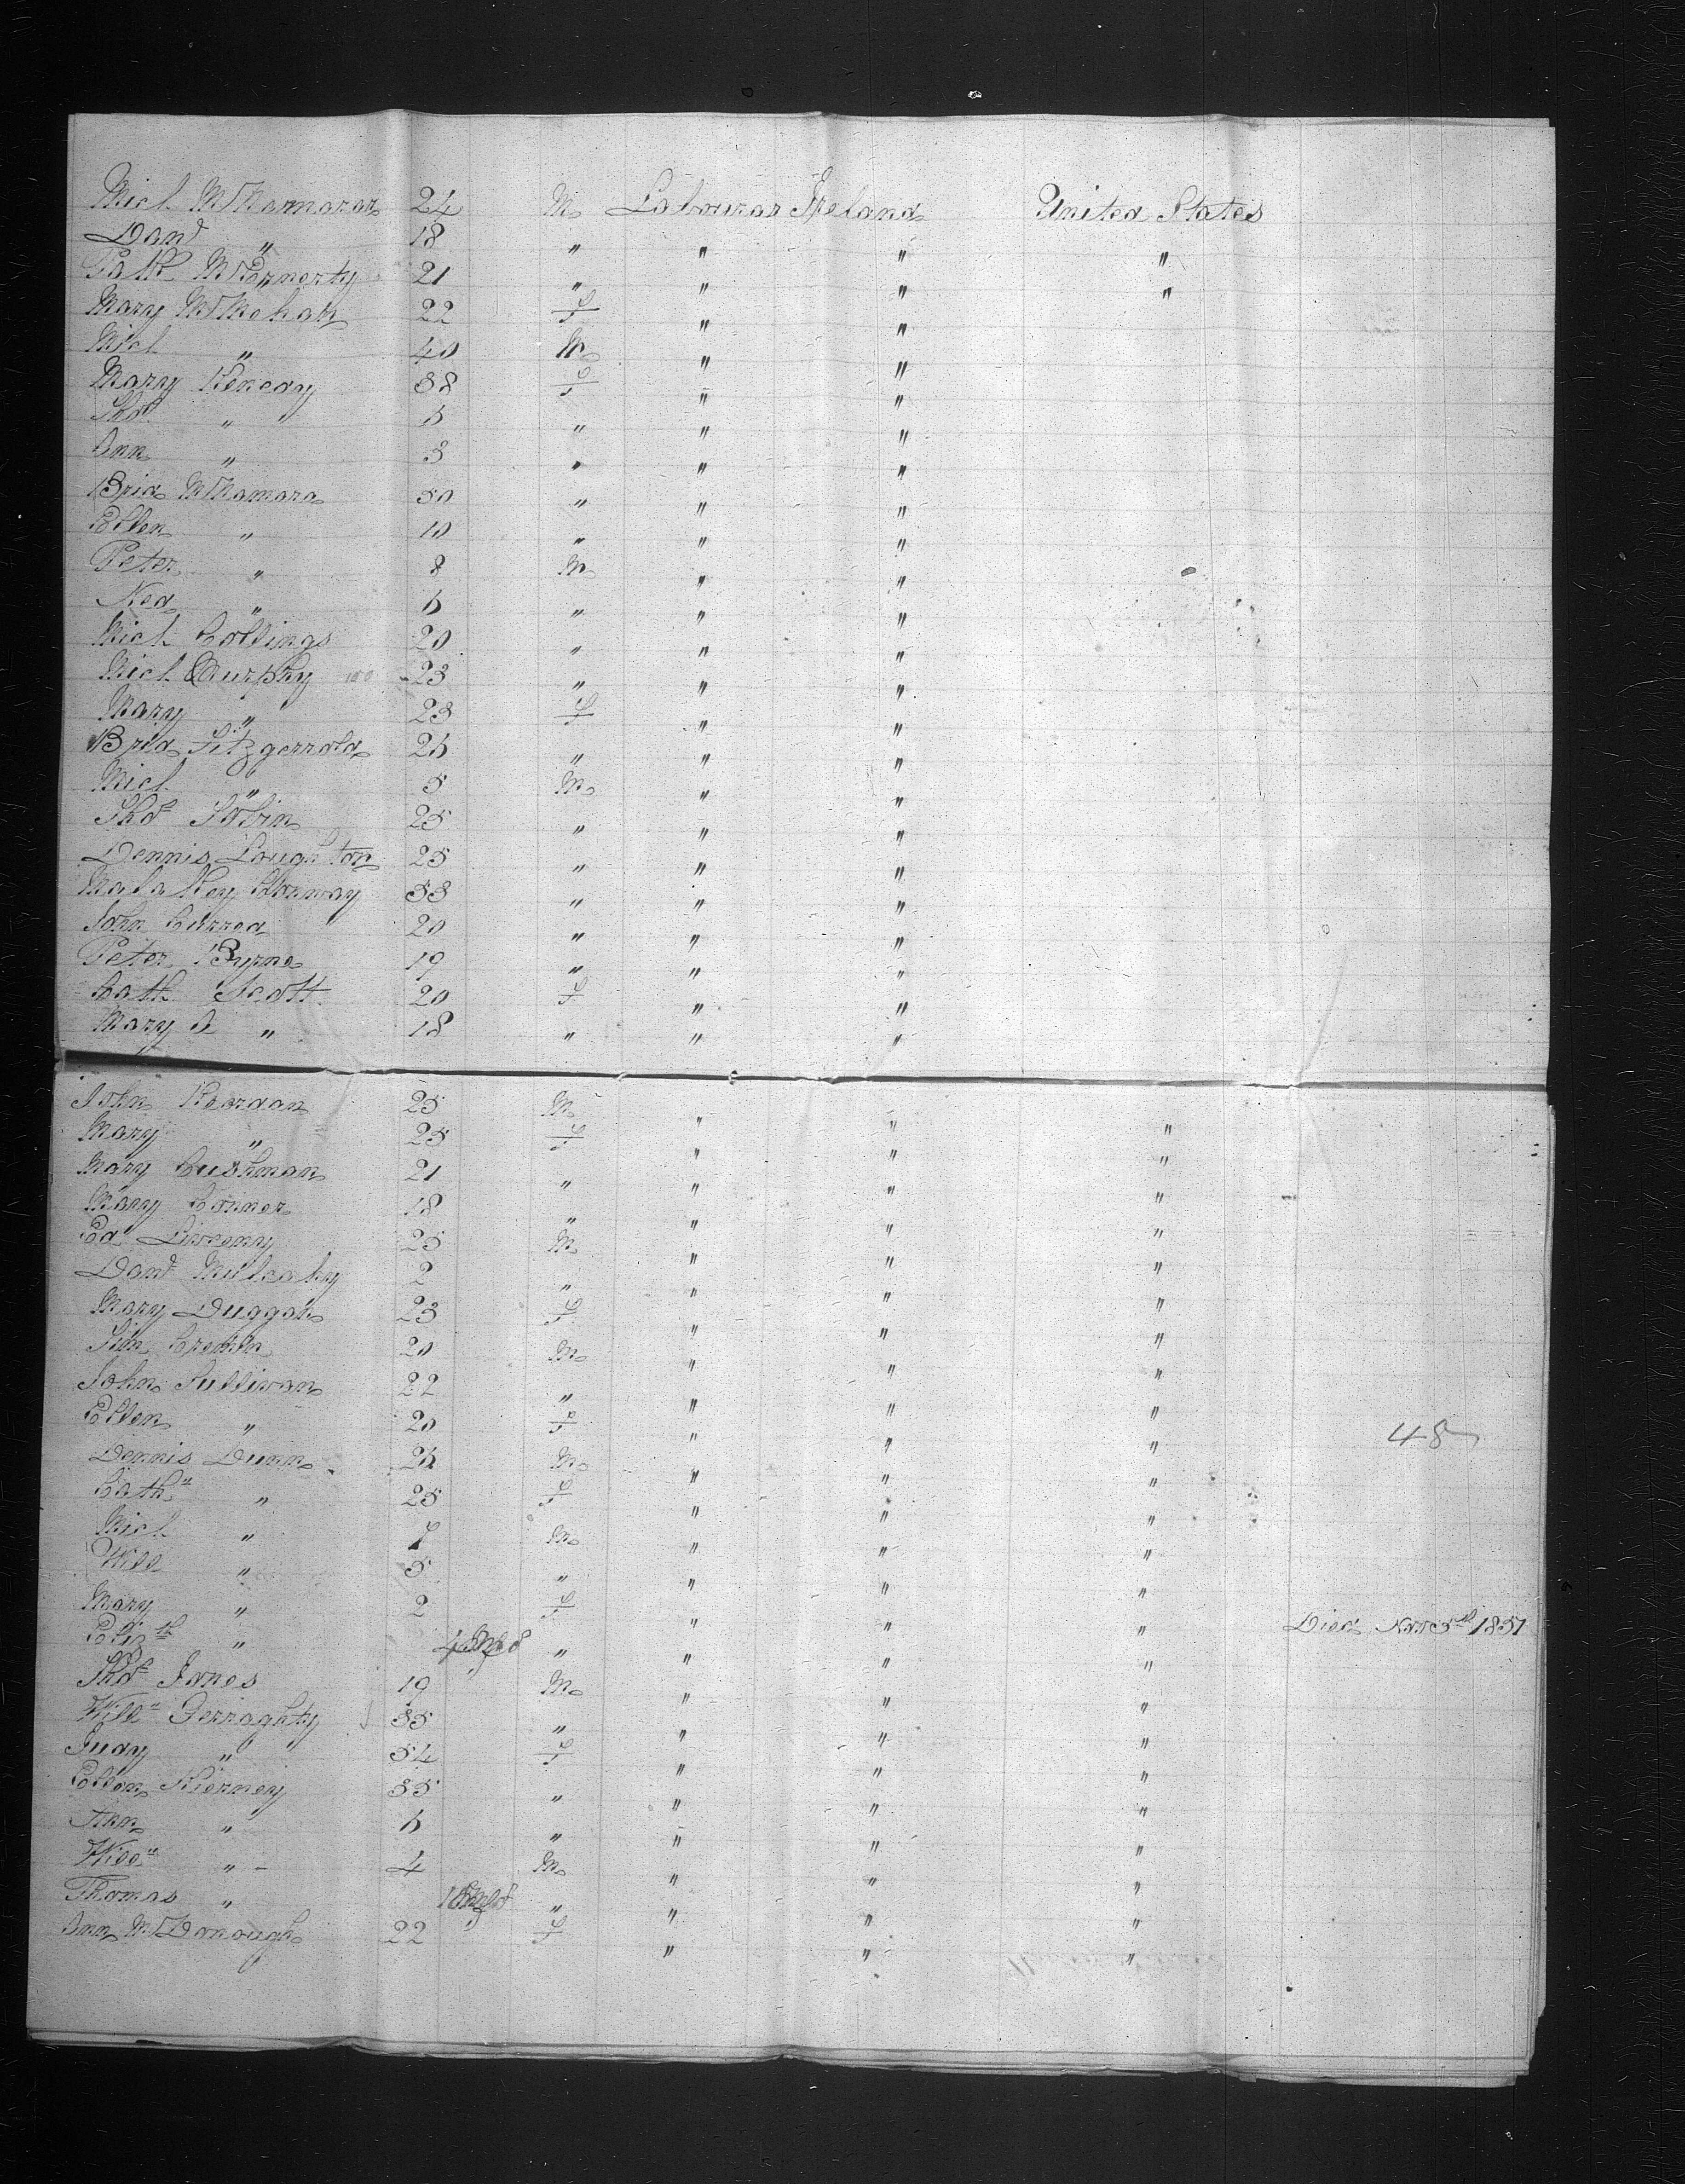 Mich McNamarar 24 M Labourar Ireland United States
Danl " 18 " " " "
Patk McInnerty 21 " " " "
Mary McMahan 22 F " "
Mich " 40 M " "
Mary Kenedy 38 F " "
Thos " 6 " " "
Ann " 3 " " "
Brid McNamara 30 " " "
Ellen " 10 " " "
Peter " 8 M " "
Ned " 6 " " "
Mich Collings 20 " " "
Mich Murphy 23 " " "
Mary " 23 F " "
Brid Fitzgerrald 26 " " "
Mich " 5 M " "
Thos Tobin 25 " " "
Dennis Loughton 25 " " "
Malakey Conway 33 " " "
John Curred 20 " " "
Peter Byrne 19 " " "
Cath Scott 20 F " "
Mary A " 18 " " "
John Reardan 25 M " " "
Mary " 25 F " " "
Mary Cushman 21 " " " "
Mary Conner 18 " " " "
Ed 25 M " " "
Danl Mulcahy 2 " " " "
Mary Duggan 23 F " " "
Tim Cremin 20 M " " "
John Sullivan 22 " " " "
Ellen " 20 F " " " 48
Dennis Dunn 26 M " " "
Cathn " 25 F " " "
Mich " 7 M " " "
Will " 5 " " " "
Mary " 2 F " " "
Elizth " " " " " Died Nov 5th 1851
Thos Jones 19 M " " "
Willm Gerraghty 35 " " " "
Judy " 34 F " " "
Ellen Kierney 35 " " " "
Ann " 6 " " " "
Willm " 4 M " " "
Thomas " " " " "
Ann McDonough 22 F " " "